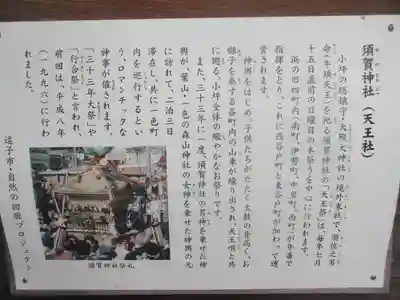 須賀神社（天王社）
小坪の総鎮守・天照大神の境外末社で、須佐之男
命（牛頭天王）を祀る須賀神社の「天王祭」は、毎年七月
十五日直前の日曜日の本祭りを中心に行われます。
浜の旧四町内（南町、伊勢町、中里町、西町）が年番で
指揮をとり、これに西谷戸町と東谷戸町が加わって運
営されます。
神輿をはじめ、子供たちがたたく太鼓の音高く、お
囃子を奏する各町内の山車が繰り出され、天王唄と共
に廻る、小坪全体の賑やかなお祭りです。
また、三十三年に一度、須賀神社の男神を乗せた神
輿が、葉山・一色の森山神社の女神を乗せた神輿の元
に訪れて、二泊三日
滞在し、共に一色町
内を巡行するとい
う、ロマンチックな
神事が催されます。
「三十三年大祭」や
「行合祭」と言われ、
前回は、平成八年
（一九九六）に行わ
れました。
須賀神社祭礼
逗子市・自然の回廊プロジェクト